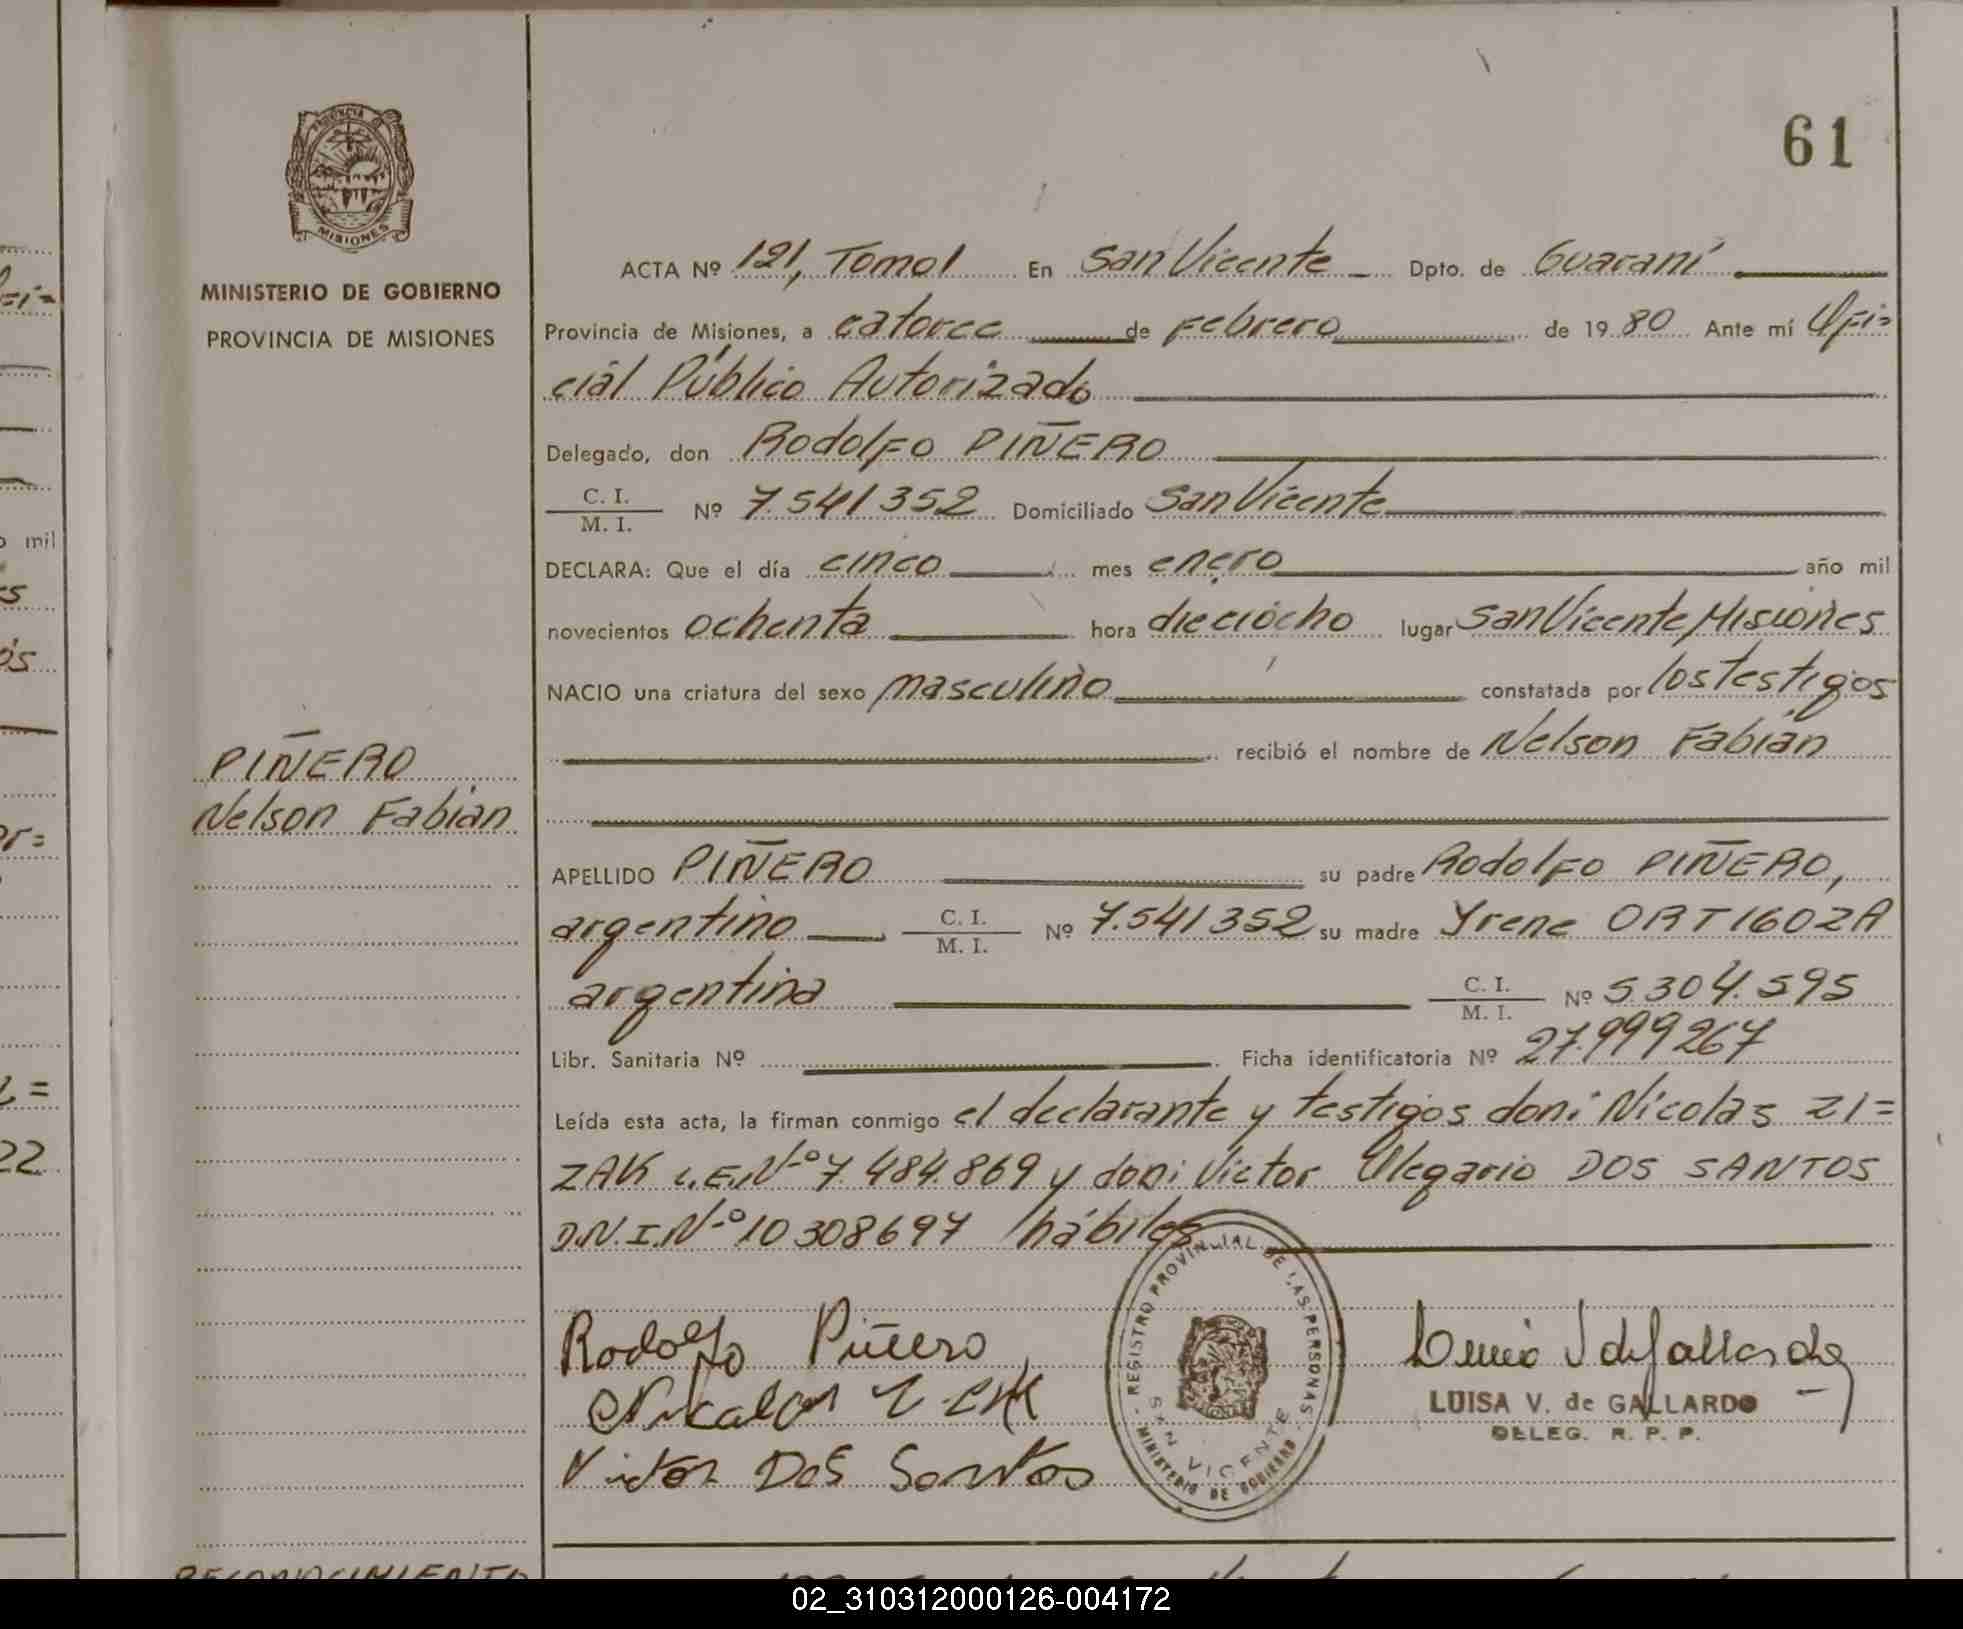 PROVINCIA DE
MISIONES
MINISTERIO DE GOBIERNO
PROVINCIA DE MISIONES
PIÑERO
Nelson Fabian
61
ACTA Nº 121, Tomo I En San Vicente Dpto. de Guaraní
Provincia de Misiones, a catorce de Febrero de 1980 Ante mí Ofi=
cial Público Autorizado
Delegado, don Rodolfo PIÑERO
C. I. / M. I. Nº 7.541352 Domiciliado San Vicente
DECLARA: Que el día cinco mes enero año mil
novecientos ochenta hora dieciocho lugar San Vicente Misiones
NACIO una criatura del sexo masculino constatada por los testigos
recibió el nombre de Nelson Fabian
APELLIDO PIÑERO su padre Rodolfo PIÑERO,
argentino C. I. / M. I. Nº 7.541352 su madre Yrene ORTIGOZA
argentina C. I. / M. I. Nº 5304.595
Libr. Sanitaria Nº Ficha identificatoria Nº 27.999267
Leída esta acta, la firman conmigo el declarante y testigos don: Nicolas ZI=
ZAK L.E.Nº 7.484.869 y don: Victor Olegario DOS SANTOS
D.N.I.Nº 10308697 hábiles
Rodolfo Piñero
Victor Dos Santos
REGISTRO PROVINCIAL DE LAS PERSONAS
SAN VICENTE
MINISTERIO DE GOBIERNO
LUISA V. de GALLARDO
DELEG. R. P. P.
RECONOCIMIENTO
02_310312000126-004172